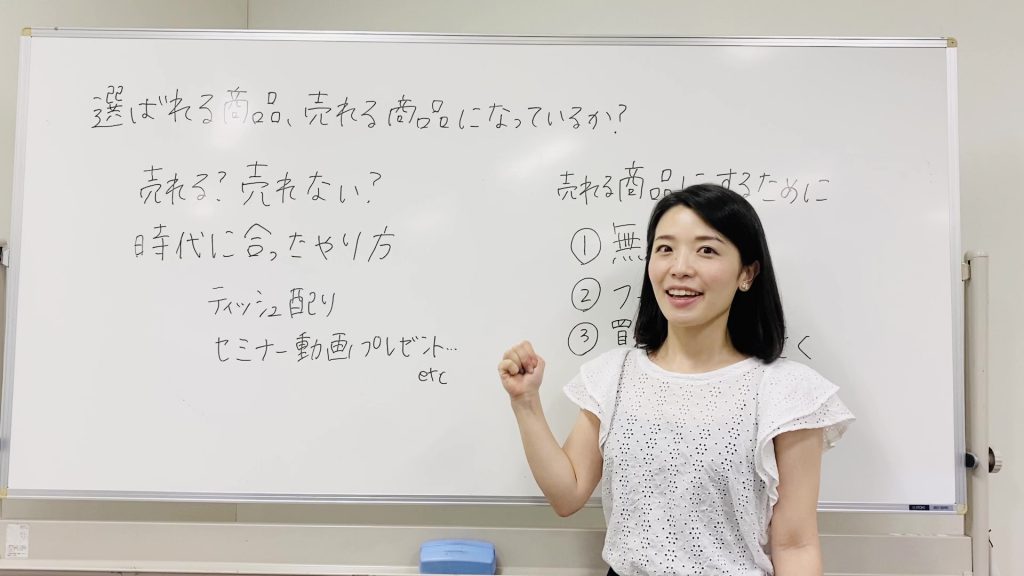 選ばれる商品、売れる商品になっているか?
売れる?売れない?
時代に合ったやり方
ティッシュ配り
セミナー動画プレゼント…
etc
売れる商品にするために
① 無
② フ
③ 買
く